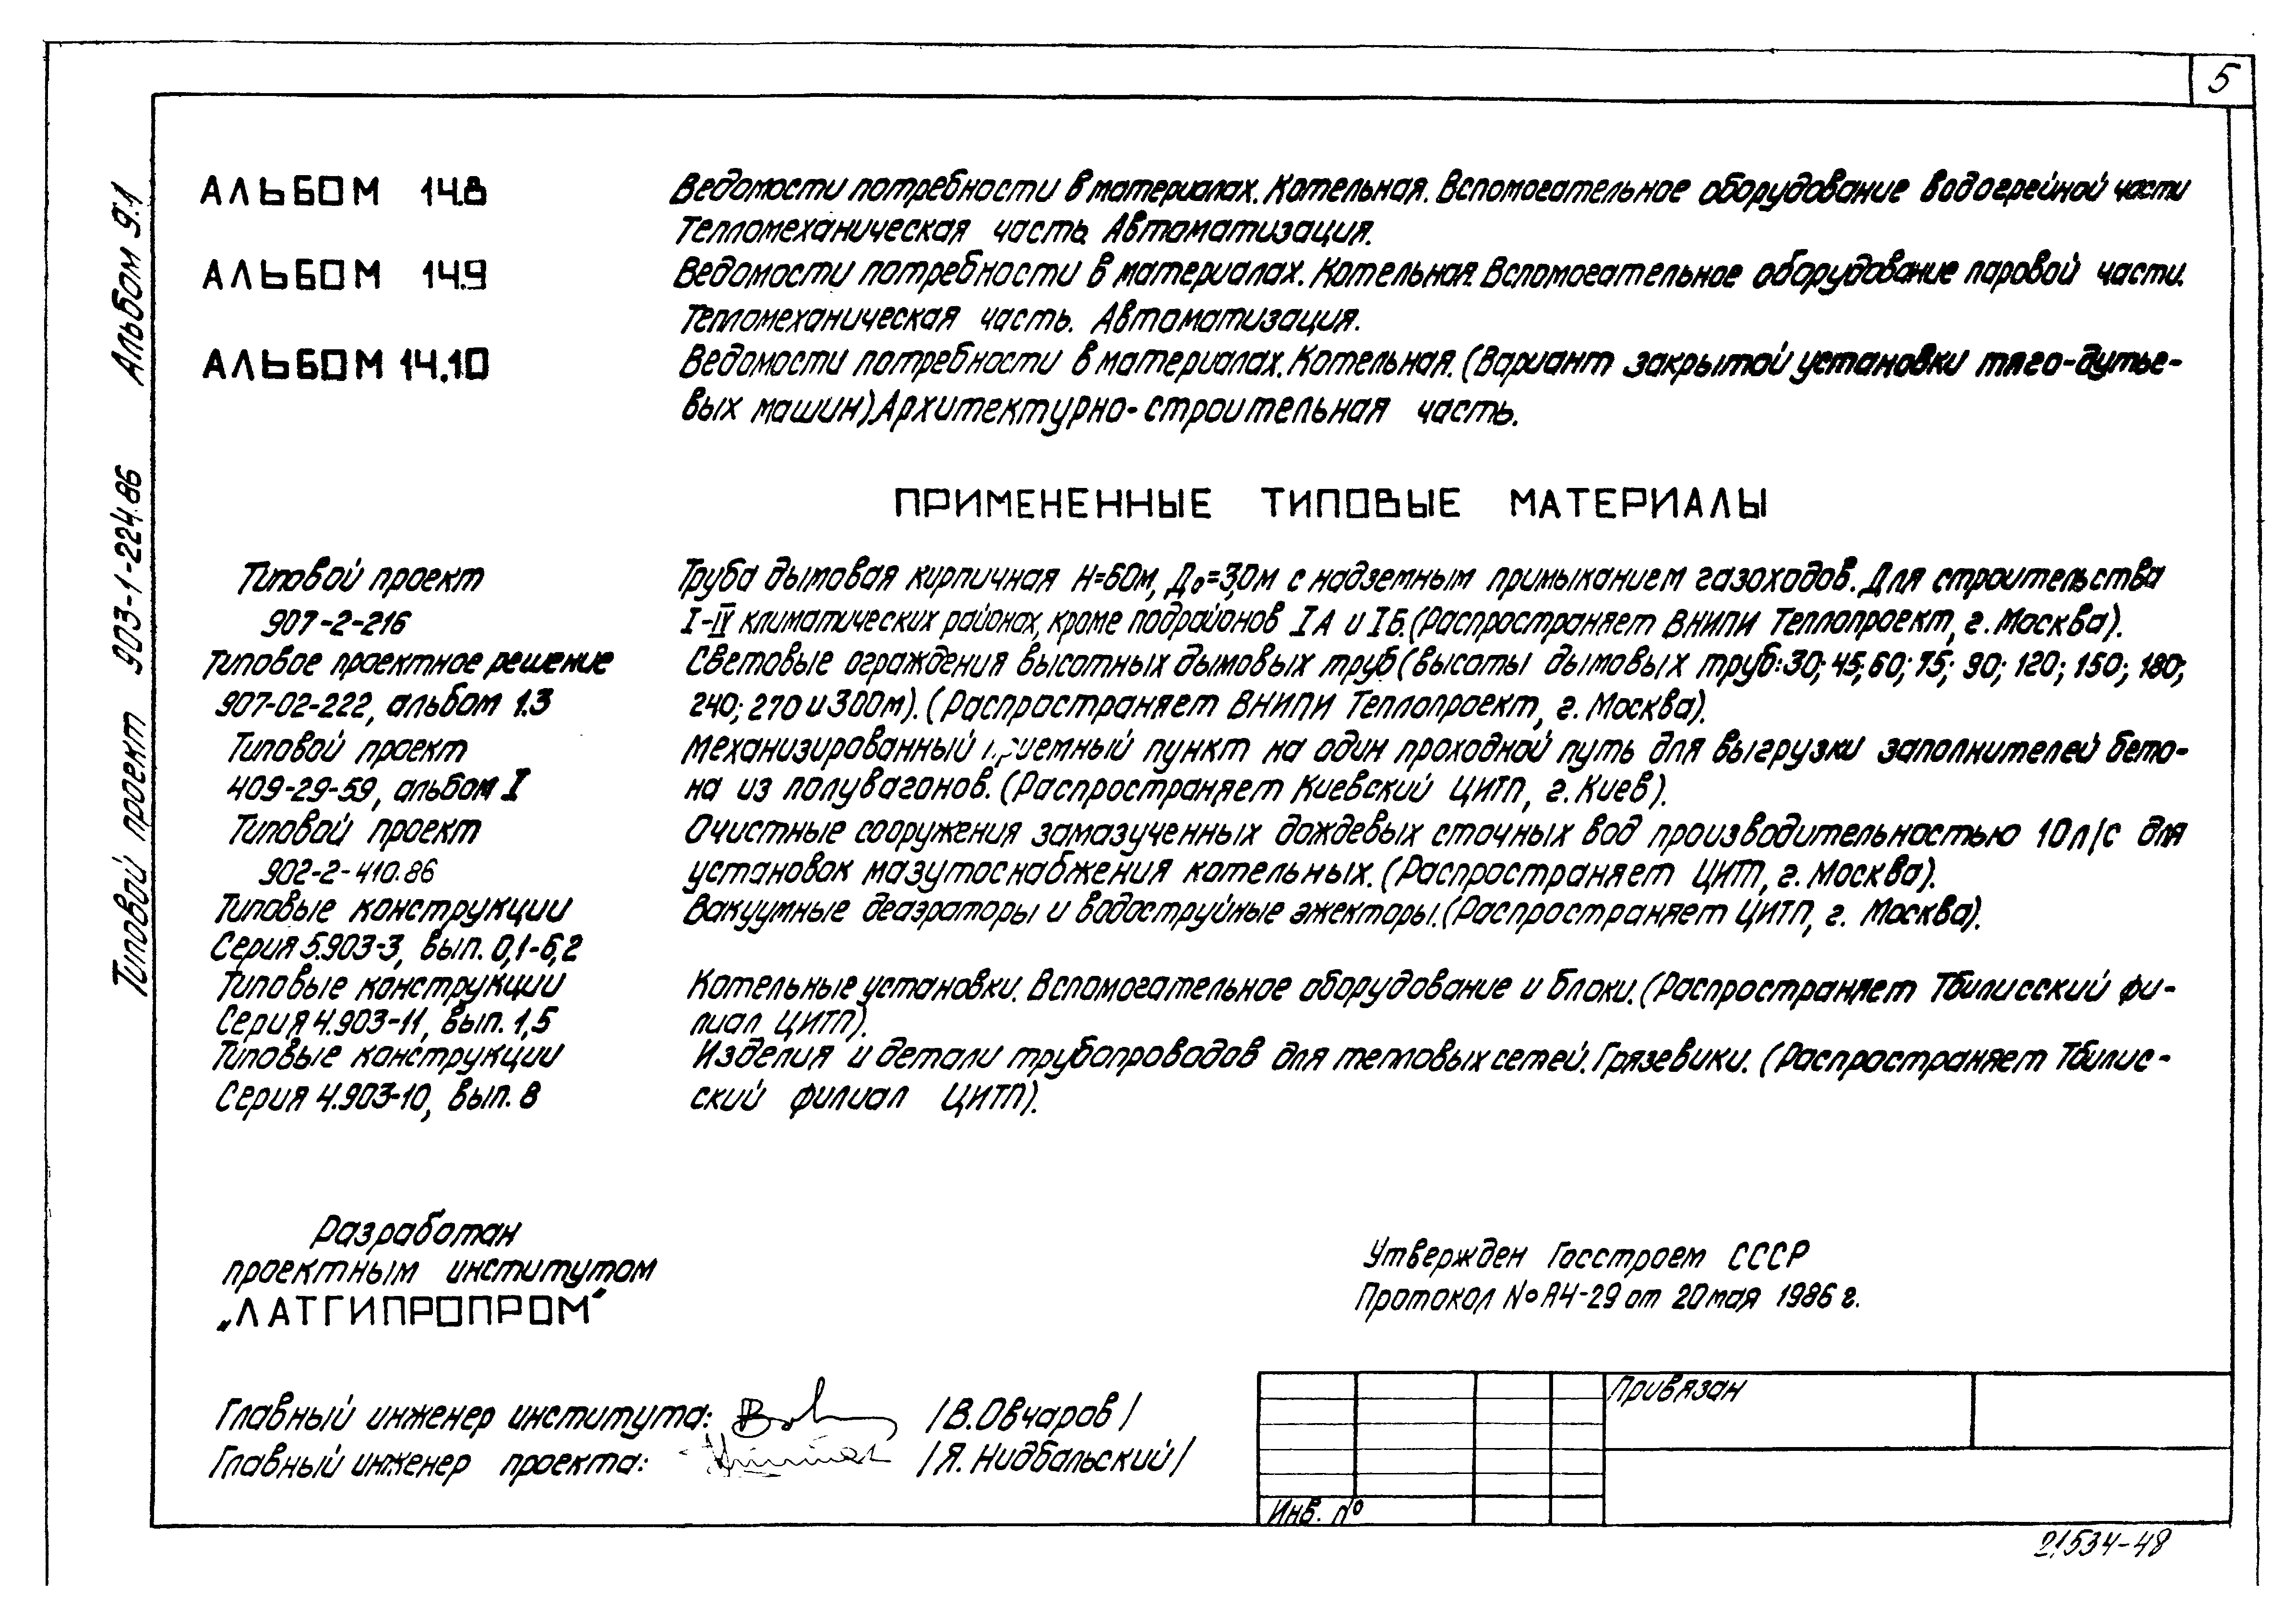 5
Альбом 9.1
Типовой проект 903-1-224.86
АЛЬБОМ 14.8 Ведомости потребности в материалах. Котельная. Вспомогательное оборудование водогрейной части
Тепломеханическая часть. Автоматизация.
АЛЬБОМ 14.9 Ведомости потребности в материалах. Котельная. Вспомогательное оборудование паровой части.
Тепломеханическая часть. Автоматизация.
АЛЬБОМ 14.10 Ведомости потребности в материалах. Котельная. (Вариант закрытой установки тяго-дутье-
вых машин). Архитектурно-строительная часть.
ПРИМЕНЕННЫЕ ТИПОВЫЕ МАТЕРИАЛЫ
Типовой проект Труба дымовая кирпичная Н=60м, До=3,0м с надземным примыканием газоходов. Для строительства
907-2-216 I-IV климатических районах, кроме подрайонов IА и IБ. (Распространяет ВНИПИ Теплопроект, г. Москва).
Типовое проектное решение Световые ограждения высотных дымовых труб (высоты дымовых труб: 30; 45; 60; 75; 90; 120; 150; 180;
907-02-222, альбом 1.3 240; 270 и 300м). (Распространяет ВНИПИ Теплопроект, г. Москва).
Типовой проект Механизированный приемный пункт на один проходной путь для выгрузки заполнителей бето-
409-29-59, альбом I на из полувагонов. (Распространяет Киевский ЦИТП, г. Киев).
Типовой проект Очистные сооружения замазученных дождевых сточных вод производительностью 10 л/с для
902-2-410.86 установок мазутоснабжения котельных. (Распространяет ЦИТП, г. Москва).
Типовые конструкции Вакуумные деаэраторы и водоструйные эжекторы. (Распространяет ЦИТП, г. Москва).
Серия 5.903-3, вып. 0,1-6,2
Типовые конструкции Котельные установки. Вспомогательное оборудование и блоки. (Распространяет Тбилисский фи-
Серия 4.903-11, вып. 1,5 лиал ЦИТП).
Типовые конструкции Изделия и детали трубопроводов для тепловых сетей. Грязевики. (Распространяет Тбилис-
Серия 4.903-10, вып. 8 ский филиал ЦИТП).
Разработан
проектным институтом
„ЛАТГИПРОПРОМ"
Утвержден Госстроем СССР
Протокол № А4-29 от 20 мая 1986 г.
Главный инженер института: /В. Овчаров/
Главный инженер проекта: /Я. Нидбальский/
Привязан
Инв. №
21534-48